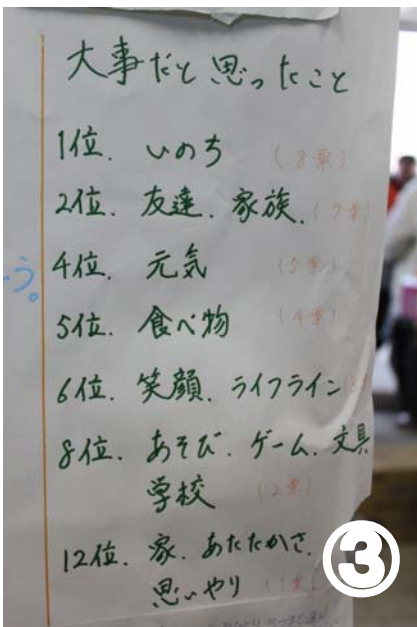 大事だと思ったこと
1位. いのち (8票)
2位. 友達. 家族. (7票)
う。
4位. 元気 (5票)
5位. 食べ物 (4票)
6位. 笑顔. ライフライン
8位. あそび. ゲーム. 文具
学校 (2票)
12位. 家. あたたかさ.
思いやり (1票)
③